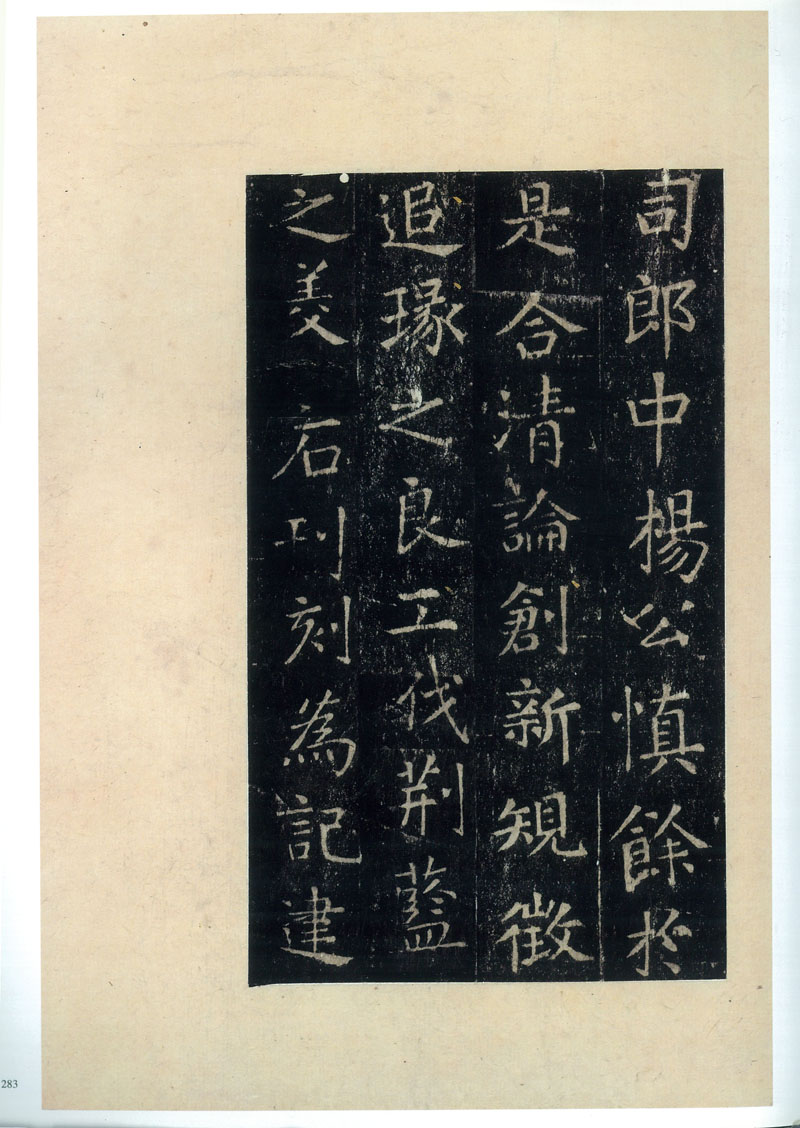 司郎中楊公慎餘於
是合清論創新規徵
追琢之良工伐荆藍
之美石刊刻為記建
283